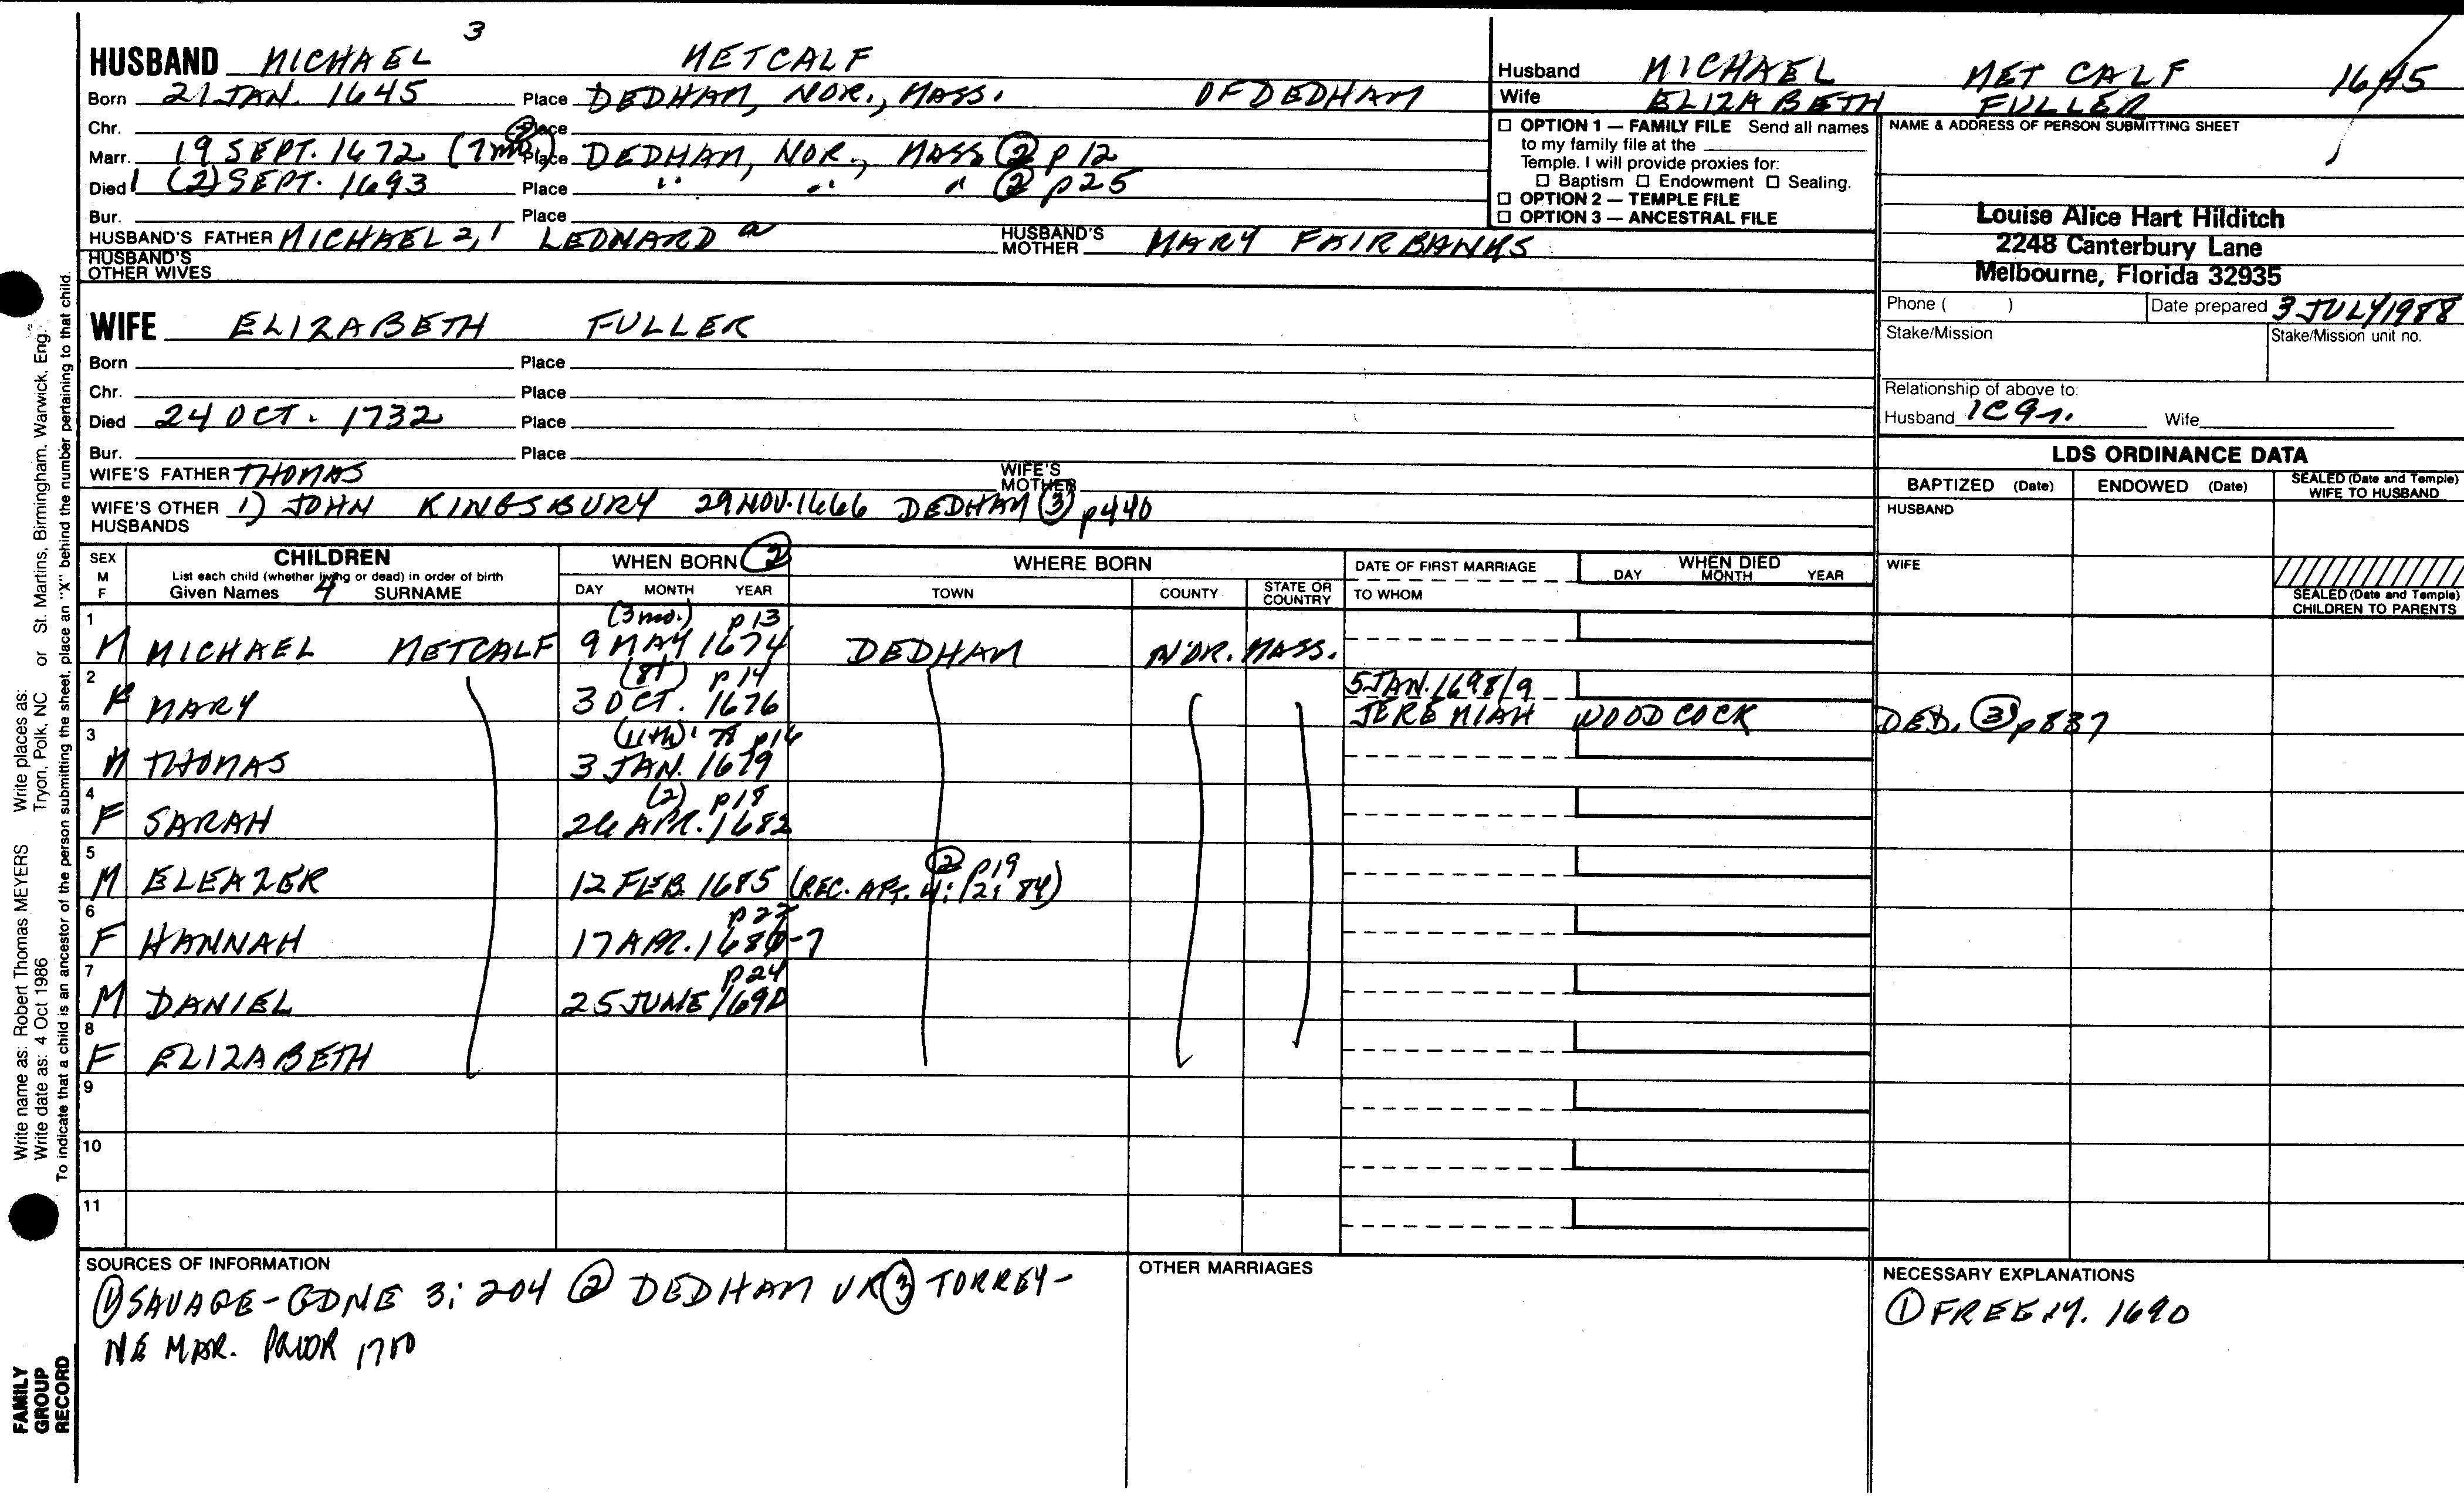 3
HUSBAND MICHAEL METCALF
Born 21 JAN. 1645 Place DEDHAM, NOR., MASS. OF DEDHAM
Chr. Place
Marr. 19 SEPT. 1672 (7 mo.) 2 Place DEDHAM, NOR., MASS 2 p 12
Died 1 (2) SEPT. 1693 Place " " " 2 p25
Bur. Place
HUSBAND'S FATHER MICHAEL 2, 1 LEONARD a HUSBAND'S MOTHER MARY FAIRBANKS
HUSBAND'S OTHER WIVES
Husband MICHAEL METCALF 1645
Wife ELIZABETH FULLER
☐ OPTION 1 — FAMILY FILE Send all names
to my family file at the
Temple. I will provide proxies for:
☐ Baptism ☐ Endowment ☐ Sealing.
☐ OPTION 2 — TEMPLE FILE
☐ OPTION 3 — ANCESTRAL FILE
NAME & ADDRESS OF PERSON SUBMITTING SHEET
Louise Alice Hart Hilditch
2248 Canterbury Lane
Melbourne, Florida 32935
Phone ( ) Date prepared 3 JULY 1988
Stake/Mission Stake/Mission unit no.
Relationship of above to:
Husband 1C9r. Wife
WIFE ELIZABETH FULLER
Born Place
Chr. Place
Died 24 OCT. 1732 Place
Bur. Place
WIFE'S FATHER THOMAS WIFE'S MOTHER
WIFE'S OTHER HUSBANDS 1) JOHN KINGSBURY 29 NOV. 1666 DEDHAM 3 p440
LDS ORDINANCE DATA
BAPTIZED (Date) ENDOWED (Date) SEALED (Date and Temple) WIFE TO HUSBAND
HUSBAND
WIFE
SEALED (Date and Temple) CHILDREN TO PARENTS
SEX M F
CHILDREN
List each child (whether living or dead) in order of birth
Given Names 4 SURNAME
WHEN BORN 2
DAY MONTH YEAR
WHERE BORN
TOWN COUNTY STATE OR COUNTRY
DATE OF FIRST MARRIAGE
TO WHOM
WHEN DIED
DAY MONTH YEAR
(3 mo.) p13
1 M MICHAEL METCALF 9 MAY 1674 DEDHAM NOR. MASS.
(8t) p 14 5 JAN. 1698/9
2 MARY 3 OCT. 1676 JEREMIAH WOODCOCK DED. 3 p837
(11th) '78 p16
3 M THOMAS 3 JAN. 1679
(2) p18
4 F SARAH 26 APR. 1682
2 p19
5 M ELEAZER 12 FEB. 1685 (REC. APT. 4: 12: 84)
p22
6 F HANNAH 17 APR. 1686-7
p24
7 M DANIEL 25 JUNE 1690
8 F ELIZABETH
9
10
11
SOURCES OF INFORMATION
1 SAVAGE-GDNE 3: 204 2 DEDHAM VR 3 TORREY-
NE MAR. PRIOR 1700
OTHER MARRIAGES
NECESSARY EXPLANATIONS
1 FREEM. 1690
Write name as: Robert Thomas MEYERS Write places as: Tryon, Polk, NC or St. Martins, Birmingham, Warwick, Eng.
Write date as: 4 Oct 1986
To indicate that a child is an ancestor of the person submitting the sheet, place an "X" behind the number pertaining to that child.
FAMILY
GROUP
RECORD